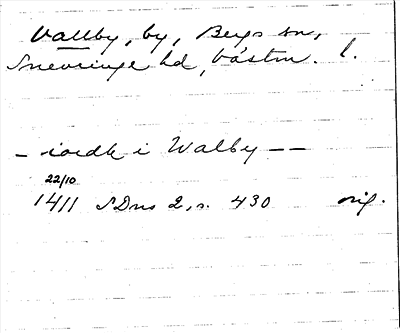 Vallby, by, Bergs sn,
Snevringe hd, västm. l.
– iordh i Walby – –
22/10
1411 SDns 2, s. 430 orig.